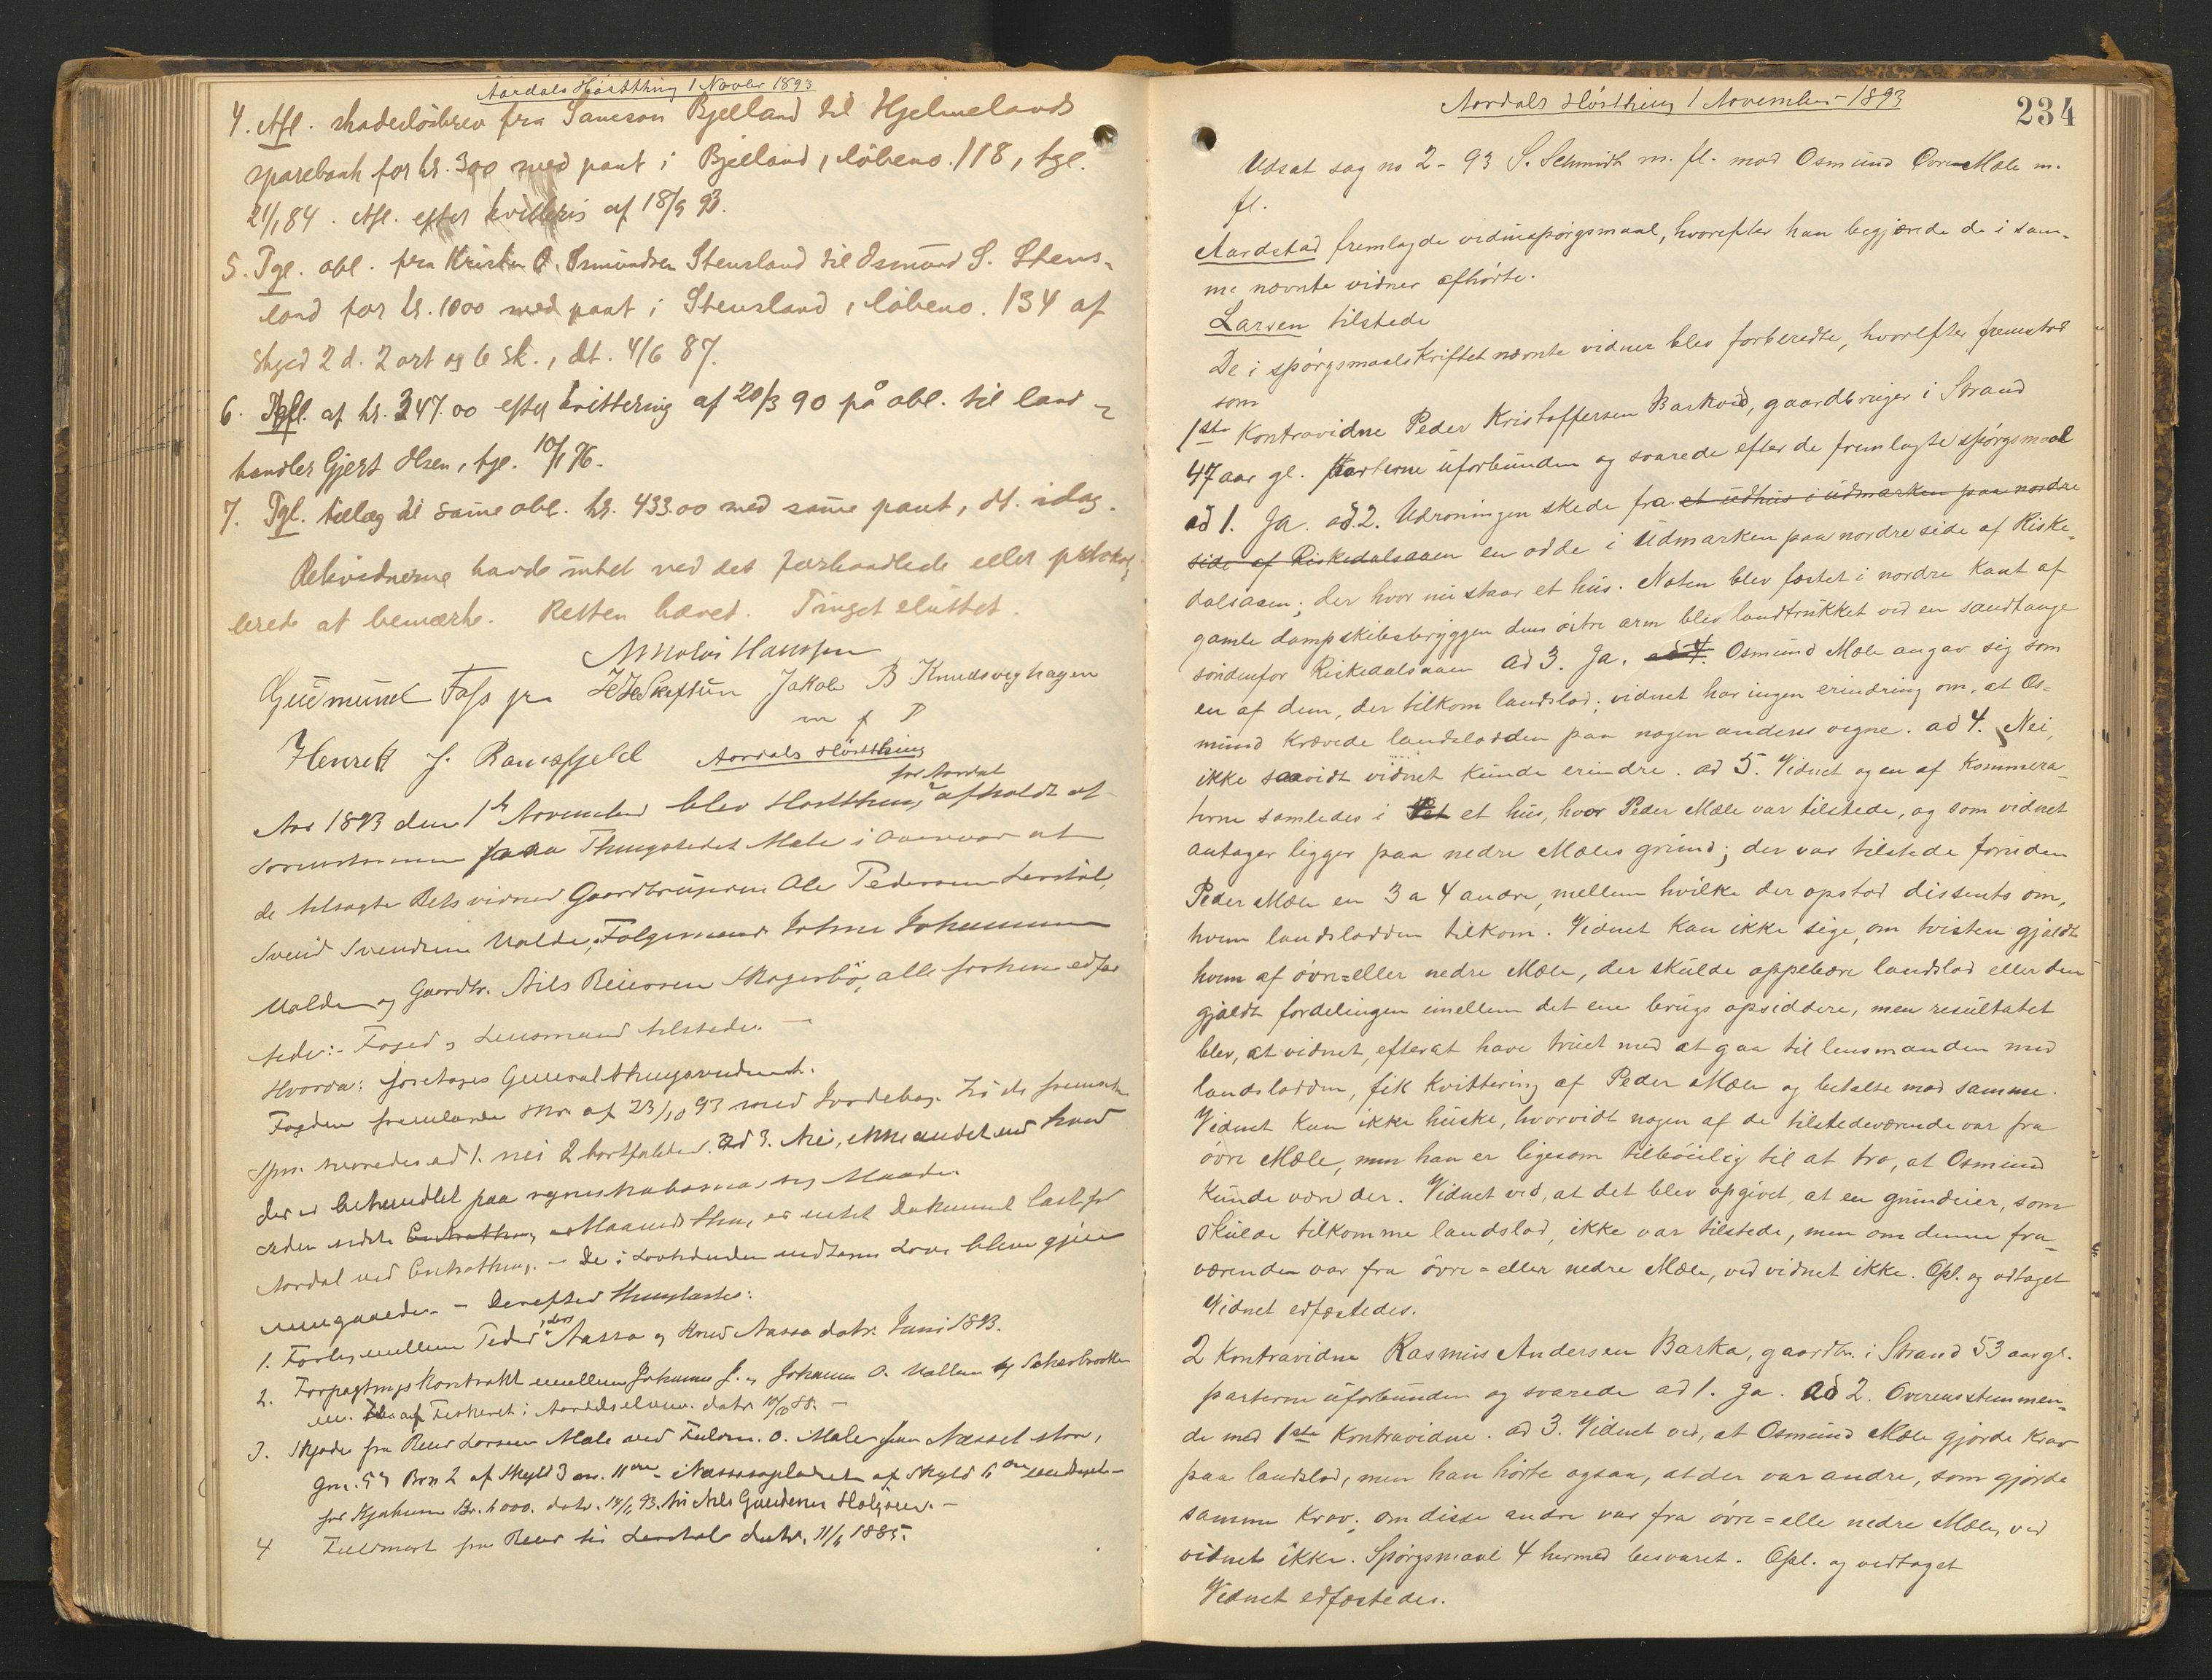 Aardals Høstthing 1 Novbr 1893
4. Afl. skadesløsbrev fra Samson Bjelland til Hjelmelands
sparebank for kr. 300 med pant i Bjelland, löbeno. 118, tgl.
21/1 84. Afl. efter kvittering af 18/9 93.
5. Tgl. obl. fra Kristen O. Osmundsen Stensland til Osmund S. Stens-
land for kr. 1000 med pant i Stensland, löbeno. 134 af
skyld 2 d. 2 ort og 6 sk., dt. 4/6 87.
6. Afl. af kr. 347.00 efter kvittering af 20/3 90 på obl. til land-
handler Gjert Olsen, tgl. 10/11 76.
7. Tgl. tillæg til same obl. kr. 433.00 med same pant, dt. idag.
Retvidnerne havde intet ved det forhandlede eller protokol-
lerede at bemærke. Retten hævet. Tinget sluttet.
Nikolai Hanssen
Gudmund Foss jr. Jakob B Knudsvighagen
m f P
Henrik J. Ramsfjeld
Aardals Høstthing
for Aardal
Aar 1893 den 1ste November blev Høstthing afholdt af
Sorenskriveren paa Thingstedet Mæle i Overvær af
de tilsagte Rets vidner Gaardbrugerne Ole Pedersen Leirhól,
Svend Svendsen Valde, Folgemand Johannes Johannessen
Valde og Gaardbr. Nils Reiersen Skogerbö, alle forhen edfæ
stede:- Foged og Lensmand tilstede. -
Hvorda: foretoges Generalthingsvidnet.
Fogden fremlagde Skr. af 23/10 93 med Jordebog. Til de fremsatte
Spm. svaredes ad 1. nei 2 bortfalder. ad 3. Nei, ikke andet end hvad
der er behandlet paa regnskabsmæssig Maade.
siden sidste Maanedsthing er intet Dokument læst for
Aardal ved Extrathing. - De i Lovtidenden indtagne Love bleve gjen
nemgaaede. - Derefter thinglæstes:
1. Forlig mellem Peder Aasso og Knud Aasso datr. Juni 1893.
2. Forpagtningskontrakt mellem Johannes J. og Johannes O. Valle
m. Fiskeriet i Aardalselven. datr. 10/8 88. -
3. Skjøde fra Reier Larsen Mæle ved Fuldm. O. Mæle paa Næsset store,
Gno. 57 Bno 2 af Skyld 3 m. 11 øre
for Kjøbesum Kr. 6000. datr. 18/6 93. til Nils Gundersen
4 Fuldmagt fra Reier til Leirhol datr. 11/5 1885.
Aardals Høstthing 1 November 1893
234
Udsat sag no 2 - 93 S. Schmidt m. fl. mod Osmund Övre Mæle m.
fl.
Aardstad fremlagde vidnespørgsmaal, hvorefter han begjærede de i sam-
me nævnte vidner afhørte.
Larsen tilstede
De i spørgsmaalskriftet nævnte vidner blev forberedte, hvorefter fremstod
som
1ste Kontravidne Peder Kristoffersen Barkved, gaardbruger i Strand
47 aar gl. parterne uforbunden og svarede efter de fremlagte spörgsmaal
ad 1. Ja. ad 2. Udroningen skede fra et udhus i udmarken paa nordre
side af Riskedalsaaen en odde i udmarken paa nordre side af Riske-
dalsaaen; der hvor nu staar et hus. Noten blev fæstet i nordre kant af
gamle dampskibsbryggen dens ösitre arm blev landtrukket ved en sandtange
söndenfor Riskedalsaaen Ad 3. Ja. ad 4. Osmund Mæle angav sig som
en af dem, der tilkom landslod; vidnet har ingen erindring om, at Os-
mund krævede landslodden paa nogen andens vegne. ad 4. Nei,
ikke saavidt vidnet kunde erindre. ad 5. Vidnet og en af kommera-
terne samledes i et hus, hvor Peder Mæle var tilstede, og som vidnet
antager ligger paa nedre Mæles grund; der var tilstede foruden
Peder Mæle en 3 a 4 andre, mellem hvilke der opstod dissents om,
hvem landslodden tilkom. Vidnet kan ikke sige, om tvisten gjældt
hvem af övre= eller nedre Mæle, der skulde oppebære landslod eller den
gjældt fordelingen imellem det ene brugs opsiddere, men resultatet
blev, at vidnet, efterat have truet med at gaa til lensmanden med
landslodden, fik kvittering af Peder Mæle og betalte mod samme.
Vidnet kan ikke huske, hvorvidt nogen af de tilstedeværende var fra
övre Mæle, men han er ligesom tilböielig til at tro, at Osmund
kunde være der. Vidnet ved, at det blev opgivet, at en grundeier, som
skulde tilkomme landslod, ikke var tilstede, men om denne fra-
værende var fra övre= eller nedre Mæle, ved vidnet ikke. Opl. og vdtaget
Vidnet edfæstedes.
2 Kontravidne Rasmus Andersen Barka, gaardbr. i Strand 53 aar gl.
parterne uforbunden og svarede ad 1. Ja. Ad 2. Overensstemmen-
de med 1ste Kontravidne. ad 3. Vidnet ved, at Osmund Mæle gjorde krav
paa landslod, men han hörte ogsaa, at der var andre, som gjorde
samme krav; om disse andre var fra övre= elle nedre Mæle, ved
vidnet ikke. Spörgsmaal 4 hermed besvaret. Opl. og vedtaget
Vidnet edfæstedes.